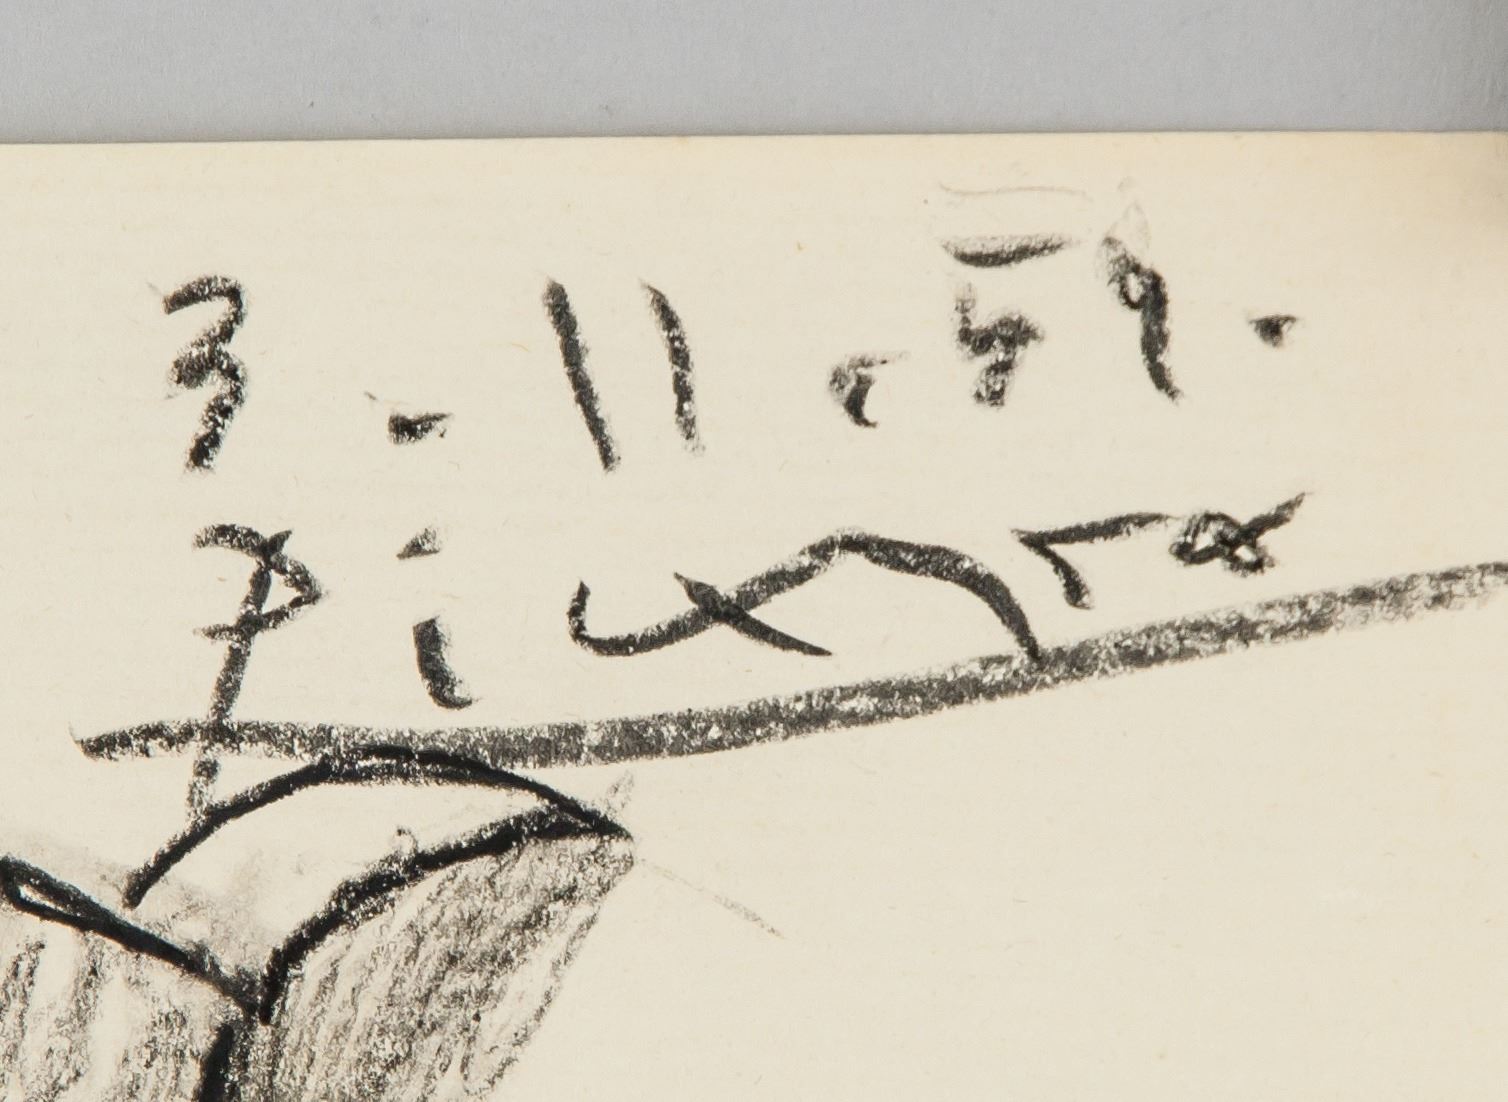 3.11.59.
Picasso